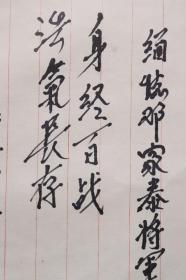 缅怀邓家泰将军
身经百战
浩气长存